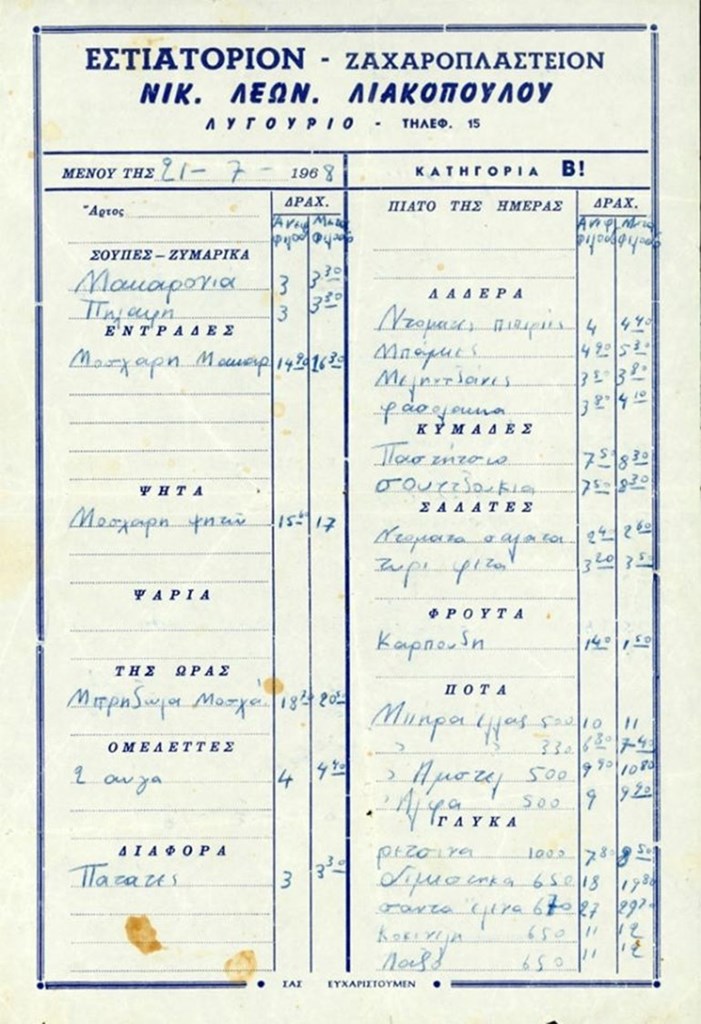 ΕΣΤΙΑΤΟΡΙΟΝ - ΖΑΧΑΡΟΠΛΑΣΤΕΙΟΝ
ΝΙΚ. ΛΕΩΝ. ΛΙΑΚΟΠΟΥΛΟΥ
ΛΥΓΟΥΡΙΟ - ΤΗΛΕΦ. 15
ΜΕΝΟΥ ΤΗΣ 21-7-1968
Ἄρτος ΔΡΑΧ.
Ανευ Μετα
Φιλοδ Φιλοδ
ΣΟΥΠΕΣ – ΖΥΜΑΡΙΚΑ
Μακαρονια 3 3 30
Πηλαφη 3 3 30
ΕΝΤΡΑΔΕΣ
Μοσχαρη Μακαρ 14 90 16 30
ΨΗΤΑ
Μοσχαρη ψητον 15 17
ΨΑΡΙΑ
ΤΗΣ ΩΡΑΣ
Μπρηζωλα Μοσχα. 18 20
ΟΜΕΛΕΤΤΕΣ
2 αυγα 4 4 40
ΔΙΑΦΟΡΑ
Πατατες 3 3 30
ΚΑΤΗΓΟΡΙΑ Β!
ΠΙΑΤΟ ΤΗΣ ΗΜΕΡΑΣ ΔΡΑΧ.
Ανευ Μετα
Φιλοδ Φιλοδ
ΛΑΔΕΡΑ
Ντοματες πιπεριες 4 4 40
Μπαμιες 4 90 5 30
Μεληντζανες 3 50 3 80
φασολακια 3 80 4 10
ΚΥΜΑΔΕΣ
Παστητσιο 7 50 8 30
σουτζουκια 7 50 8 30
ΣΑΛΑΤΕΣ
Ντοματα σαλατα 2 40 2 60
τυρι φετα 3 20 3 50
ΦΡΟΥΤΑ
Καρπουζη 1 40 1 50
ΠΟΤΑ
Μπηρα 500 10 11
» » 330 6 80 7 40
» Αμστελ 500 9 90 10 80
» Αλφα 500 9 9 90
ΓΛΥΚΑ
ρετσινα 1000 7 80 8 50
Διμεστηκα 650 18 19 80
σαντα ελενα 670 27 29 70
Κοκινελη 650 11 12
650 11 12
ΣΑΣ ΕΥΧΑΡΙΣΤΟΥΜΕΝ